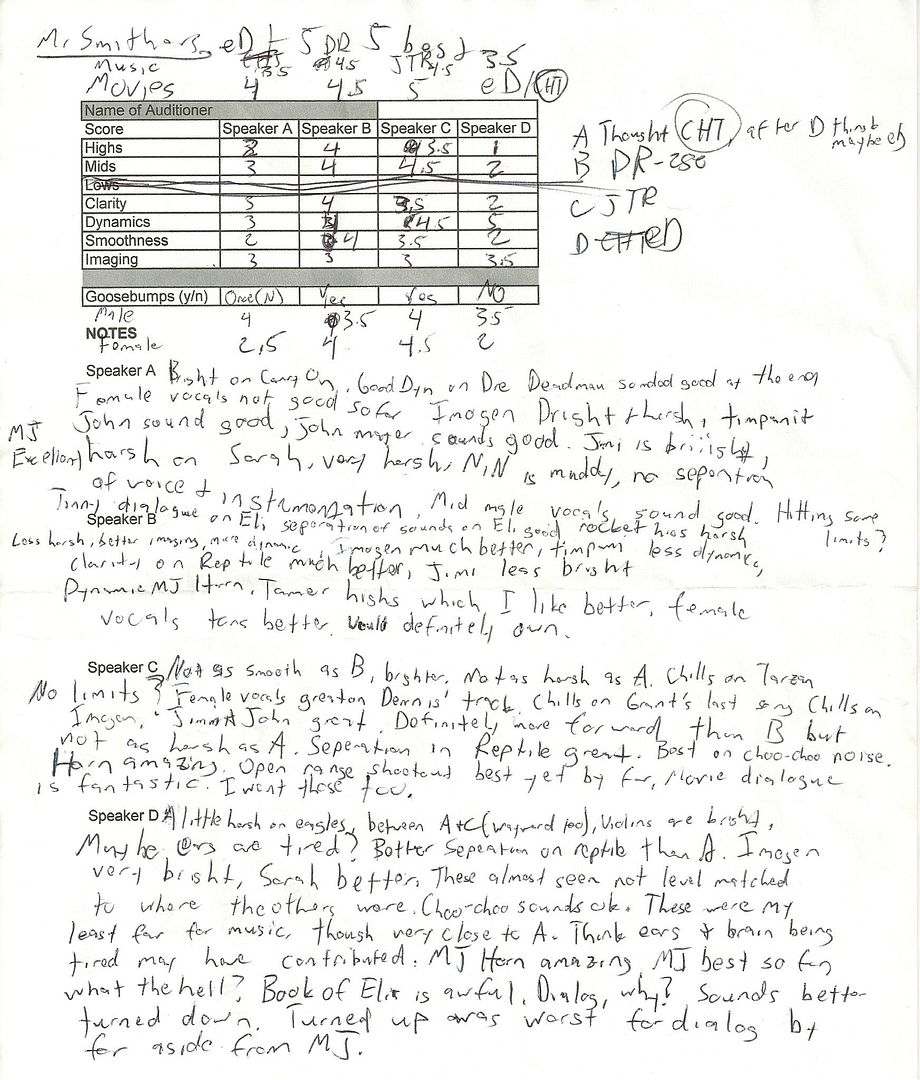 Mr Smithers eD 5 DR 5 best
Music 3.5 4.5 JTR 4.5 3.5
Movies 4 4.5 5 eD/CHT
Name of Auditioner
Score Speaker A Speaker B Speaker C Speaker D
Highs 4 3.5 1
Mids 3 4 4.5 2
Lows
Clarity 3 4 3.5 2
Dynamics 3 4.5 5
Smoothness 2 4 3.5 2
Imaging 3 3 3 3.5
Goosebumps (y/n) Once(N) Yes Yes NO
Male 4 3.5 4 3.5
NOTES
Female 2.5 4 4.5 2
A Thought CHT, after D think maybe eD
B DR-280
C JTR
D eD
Speaker A Bright on Carry On. Good Dyn on Dre Deadman sounded good at the end
Female vocals not good so far Imogen Bright & harsh, timpani
John sound good, John mayer sounds good. Jimi is briiight,
MJ Excellent
harsh on Sarah, very harsh, NIN is muddy, no separation
of voice & instrumentation. Mid male vocals sound good. Hitting some limits?
Tinny dialogue on Eli, seperation of sounds on Eli good rocket has harsh
Speaker B
Less harsh, better imaging, more dynamic Imogen much better, timpani less dynamic,
clarity on Reptile much better, Jimi less bright
Dynamic MJ Horn, Tamer highs which I like better, female
vocals tons better. Would definitely own.
Speaker C Not as smooth as B, brighter. Not as harsh as A. Chills on Tarzan
No limits? Female vocals great on Dennis' track. Chills on Grant's last song Chills on
Imogen. Jimi & John great. Definitely more forward than B but
not as harsh as A. Seperation in Reptile great. Best on choo-choo noise.
Horn amazing. Open range shootout best yet by far, Movie dialogue
is fantastic. I want these too.
Speaker D A little harsh on eagles, between A+C (wayward too), Violins are bright,
Maybe ears are tired? Better Seperation on reptile than A. Imogen
very bright, Sarah better. These almost seem not level matched
to where the others were. Choo-choo sounds ok. These were my
least fav for music, though very close to A. Think ears & brain being
tired may have contributed. MJ Horn amazing MJ best so far
what the hell? Book of Eli is awful. Dialog, why? Sounds better
turned down. Turned up was worst for dialog by
far aside from MJ.